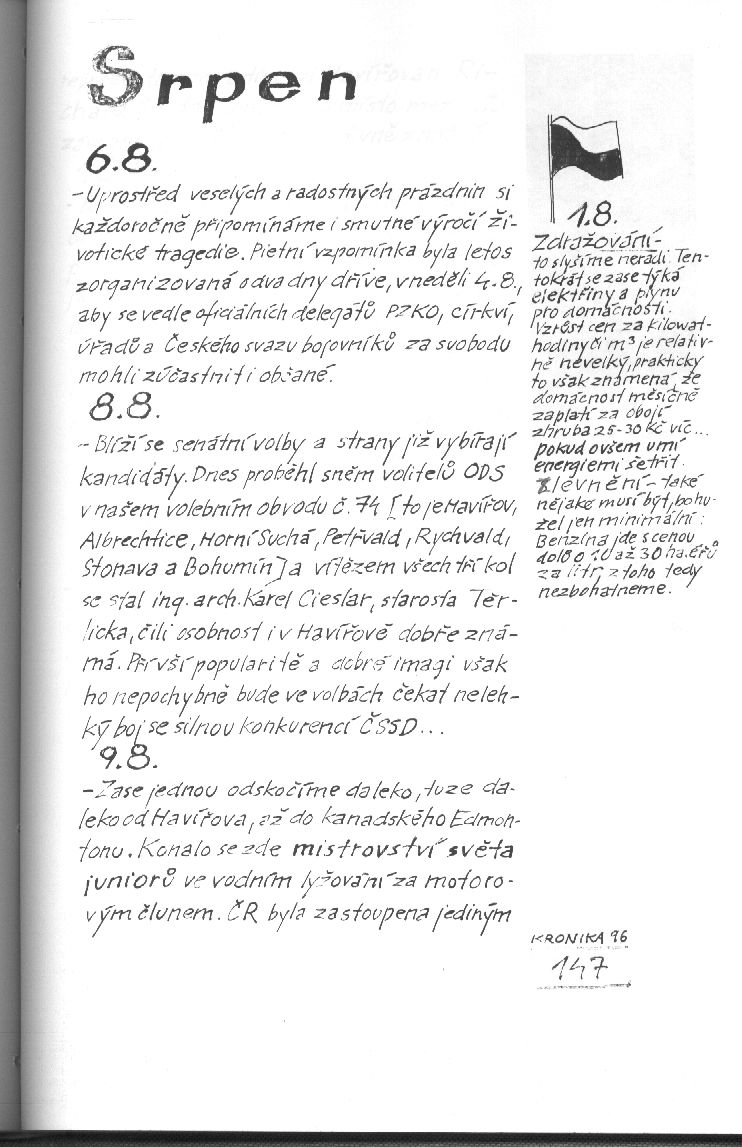 Srpen
6.8.
- Uprostřed veselých a radostných prázdnin si
každoročně připomínáme i smutné výročí ži-
votické tragedie. Pietní vzpomínka byla letos
zorganizovaná o dva dny dříve, v neděli 4.8.,
aby se vedle oficiálních delegátů PZKO, církví,
úřadů a Českého svazu bojovníků za svobodu
mohli zúčastnit i občané.
8.8.
- Blíží se senátní volby a strany již vybírají
kandidáty. Dnes proběhl sněm volitelů ODS
v našem volebním obvodu č. 74 [to je Havířov,
Albrechtice, Horní Suchá, Petřvald, Rychvald,
Stonava a Bohumín] a vítězem všech tří kol
se stal ing. arch. Karel Cieslar, starosta Těr-
licka, čili osobnost i v Havířově dobře zná-
má. Při vší popularitě a dobré imagi však
ho nepochybně bude ve volbách čekat neleh-
ký boj se silnou konkurencí ČSSD...
9.8.
- Zase jednou odskočíme daleko, tuze da-
leko od Havířova, až do kanadského Edmon-
tonu. Konalo se zde mistrovství světa
juniorů ve vodním lyžování za motoro-
vým člunem. ČR byla zastoupena jediným
1.8.
Zdražování -
to slyšíme neradi. Ten-
tokrát se zase týká
elektřiny a plynu
pro domácnosti.
Vzrůst cen za kilowat-
hodiny či m³ je relativ-
ně nevelký, prakticky
to však znamená, že
domácnost měsíčně
zaplatí za obojí
zhruba 25-30 Kč víc...
pokud ovšem umí
energiemi šetřit.
Zlevnění - také
nějaké musí být, bohu-
žel jen minimální:
Benzína jde s cenou
dolů o 10 až 30 haléřů
za litr, z toho tedy
nezbohatneme.
KRONIKA 96
147